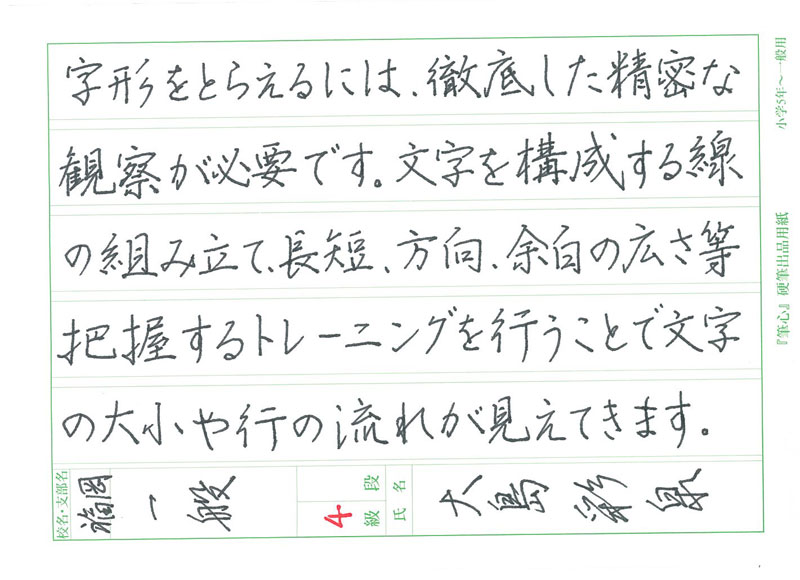 字形をとらえるには、徹底した精密な
観察が必要です。文字を構成する線
の組み立て、長短、方向、余白の広さ等
把握するトレーニングを行うことで文字
の大小や行の流れが見えてきます。
校名・支部名
福岡
一般
4
段
級
氏名
大島彩泉
小学5年〜一般用
『筆心』硬筆出品用紙